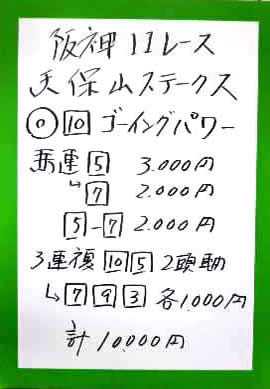 阪神11レース
天保山ステークス
◎ 10 ゴーイングパワー
馬連 5 3.000円
↳ 7 2.000円
5-7 2.000円
3連複 10 5 2頭軸
↳ 7 9 3 各1.000円
計 10.000円